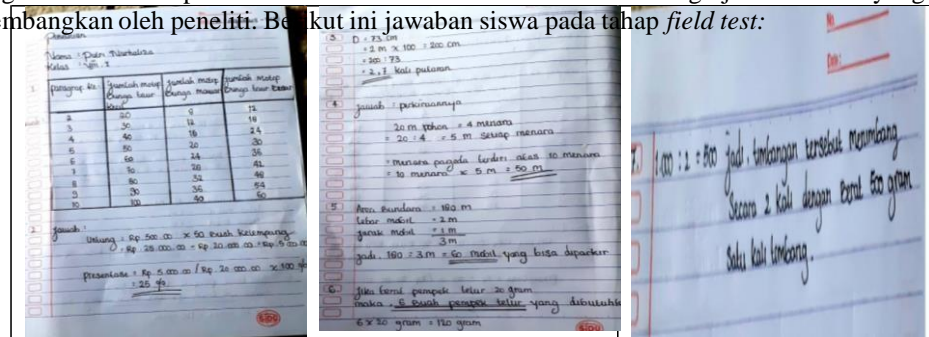 embangkan oleh peneliti. Berikut ini jawaban siswa pada tahap field test:
Penilaian
Nama : Putri Nurhaliza
Kelas : VIII.1
1. paragraf ke- Jumlah motip bunga teur kecil Jumlah motip Bunga mawar Jumlah motip bunga teur besar
2 20 8 12
3 30 12 18
4 40 16 24
5 50 20 30
6 60 24 36
7 70 28 42
8 80 32 48
9 90 36 54
10 100 40 60
2. Jawab :
Untung = Rp 500.00 x 50 buah kelempang
= Rp. 25 000.00 = Rp 20.000.00 = Rp. 5 000.00
Presentase = Rp. 5.000.00 / Rp. 20 000.00 x 100 %
= 25 %
SIDU
3. D = 73 cm
= 2 m x 100 = 200 cm
= 200 : 73
= 2,7 kali putaran
4. Jawab : perkiraannya
20 m pohon = 4 menara
= 20 : 4 = 5 m setiap menara
= menara pagoda terdiri atas 10 menara
= 10 menara x 5 m = 50 m
5. Area Bundara = 180 m
Lebar mobil = 2 m
Jarak mobil = 1 m
3 m
Jadi, 180 : 3 m = 60 mobil yang bisa diparkir
6. Jika berat pempek telur 20 gram
maka, 6 buah pempek telur yang dibutuhk
6 x 20 gram = 120 gram
SIDU
No
Date :
7. 1.000 : 2 = 500 jadi, timbangan tersebut menimbang
Secara 2 kali dengan Berat 500 gram
Satu kali timbang.